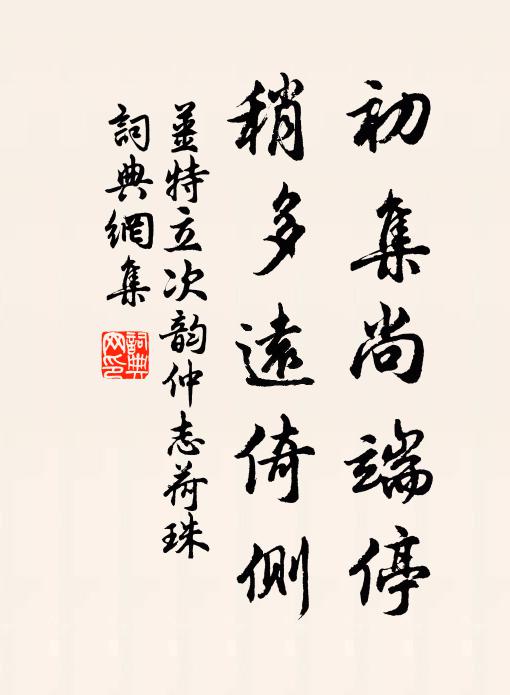 初集尚端停
稍多遠倚側
薑特立次韵仲志荷珠
詞典網集
詞典
网印